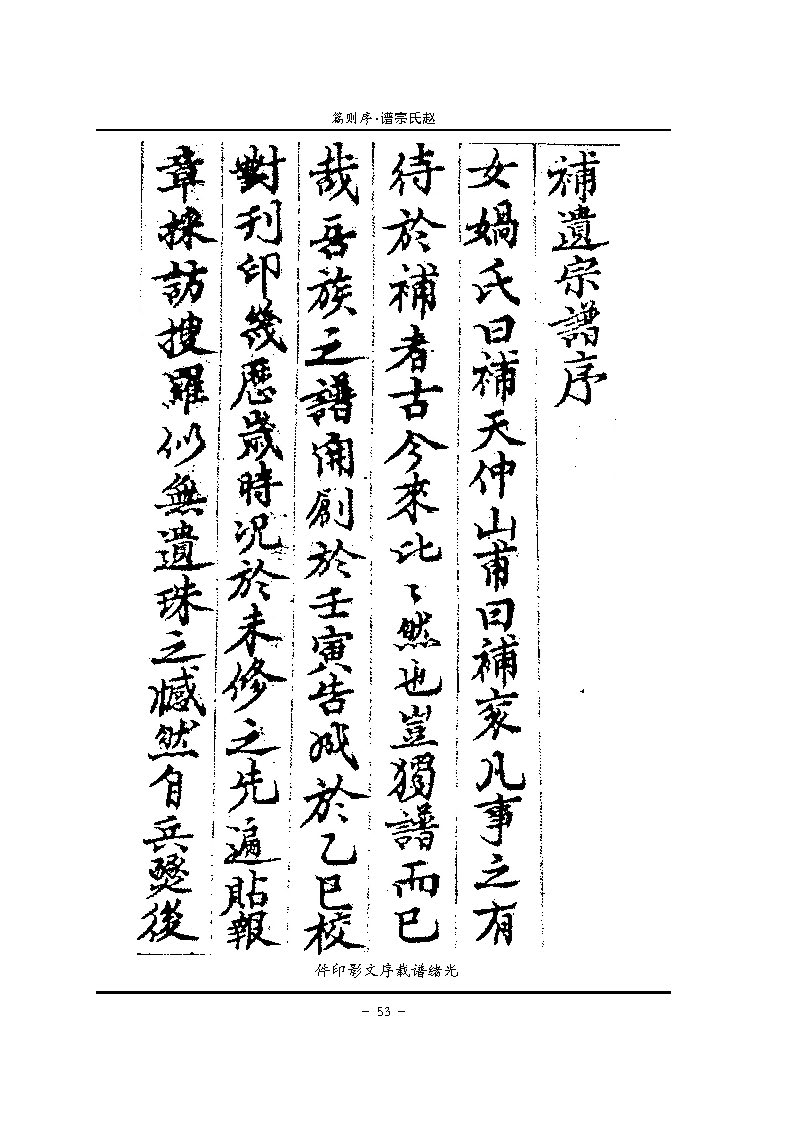 赵氏宗谱·序则篇
補遺宗譜序
女媧氏曰補天仲山甫曰補袞凡事之有
待於補者古今來比々然也豈獨譜而已
哉吾族之譜開創於壬寅告成於乙巳校
對刊印幾歷歲時況於未修之先遍貼報
章採訪搜羅似無遺珠之憾然自兵燹後
光绪谱载序文影印件
- 53 -